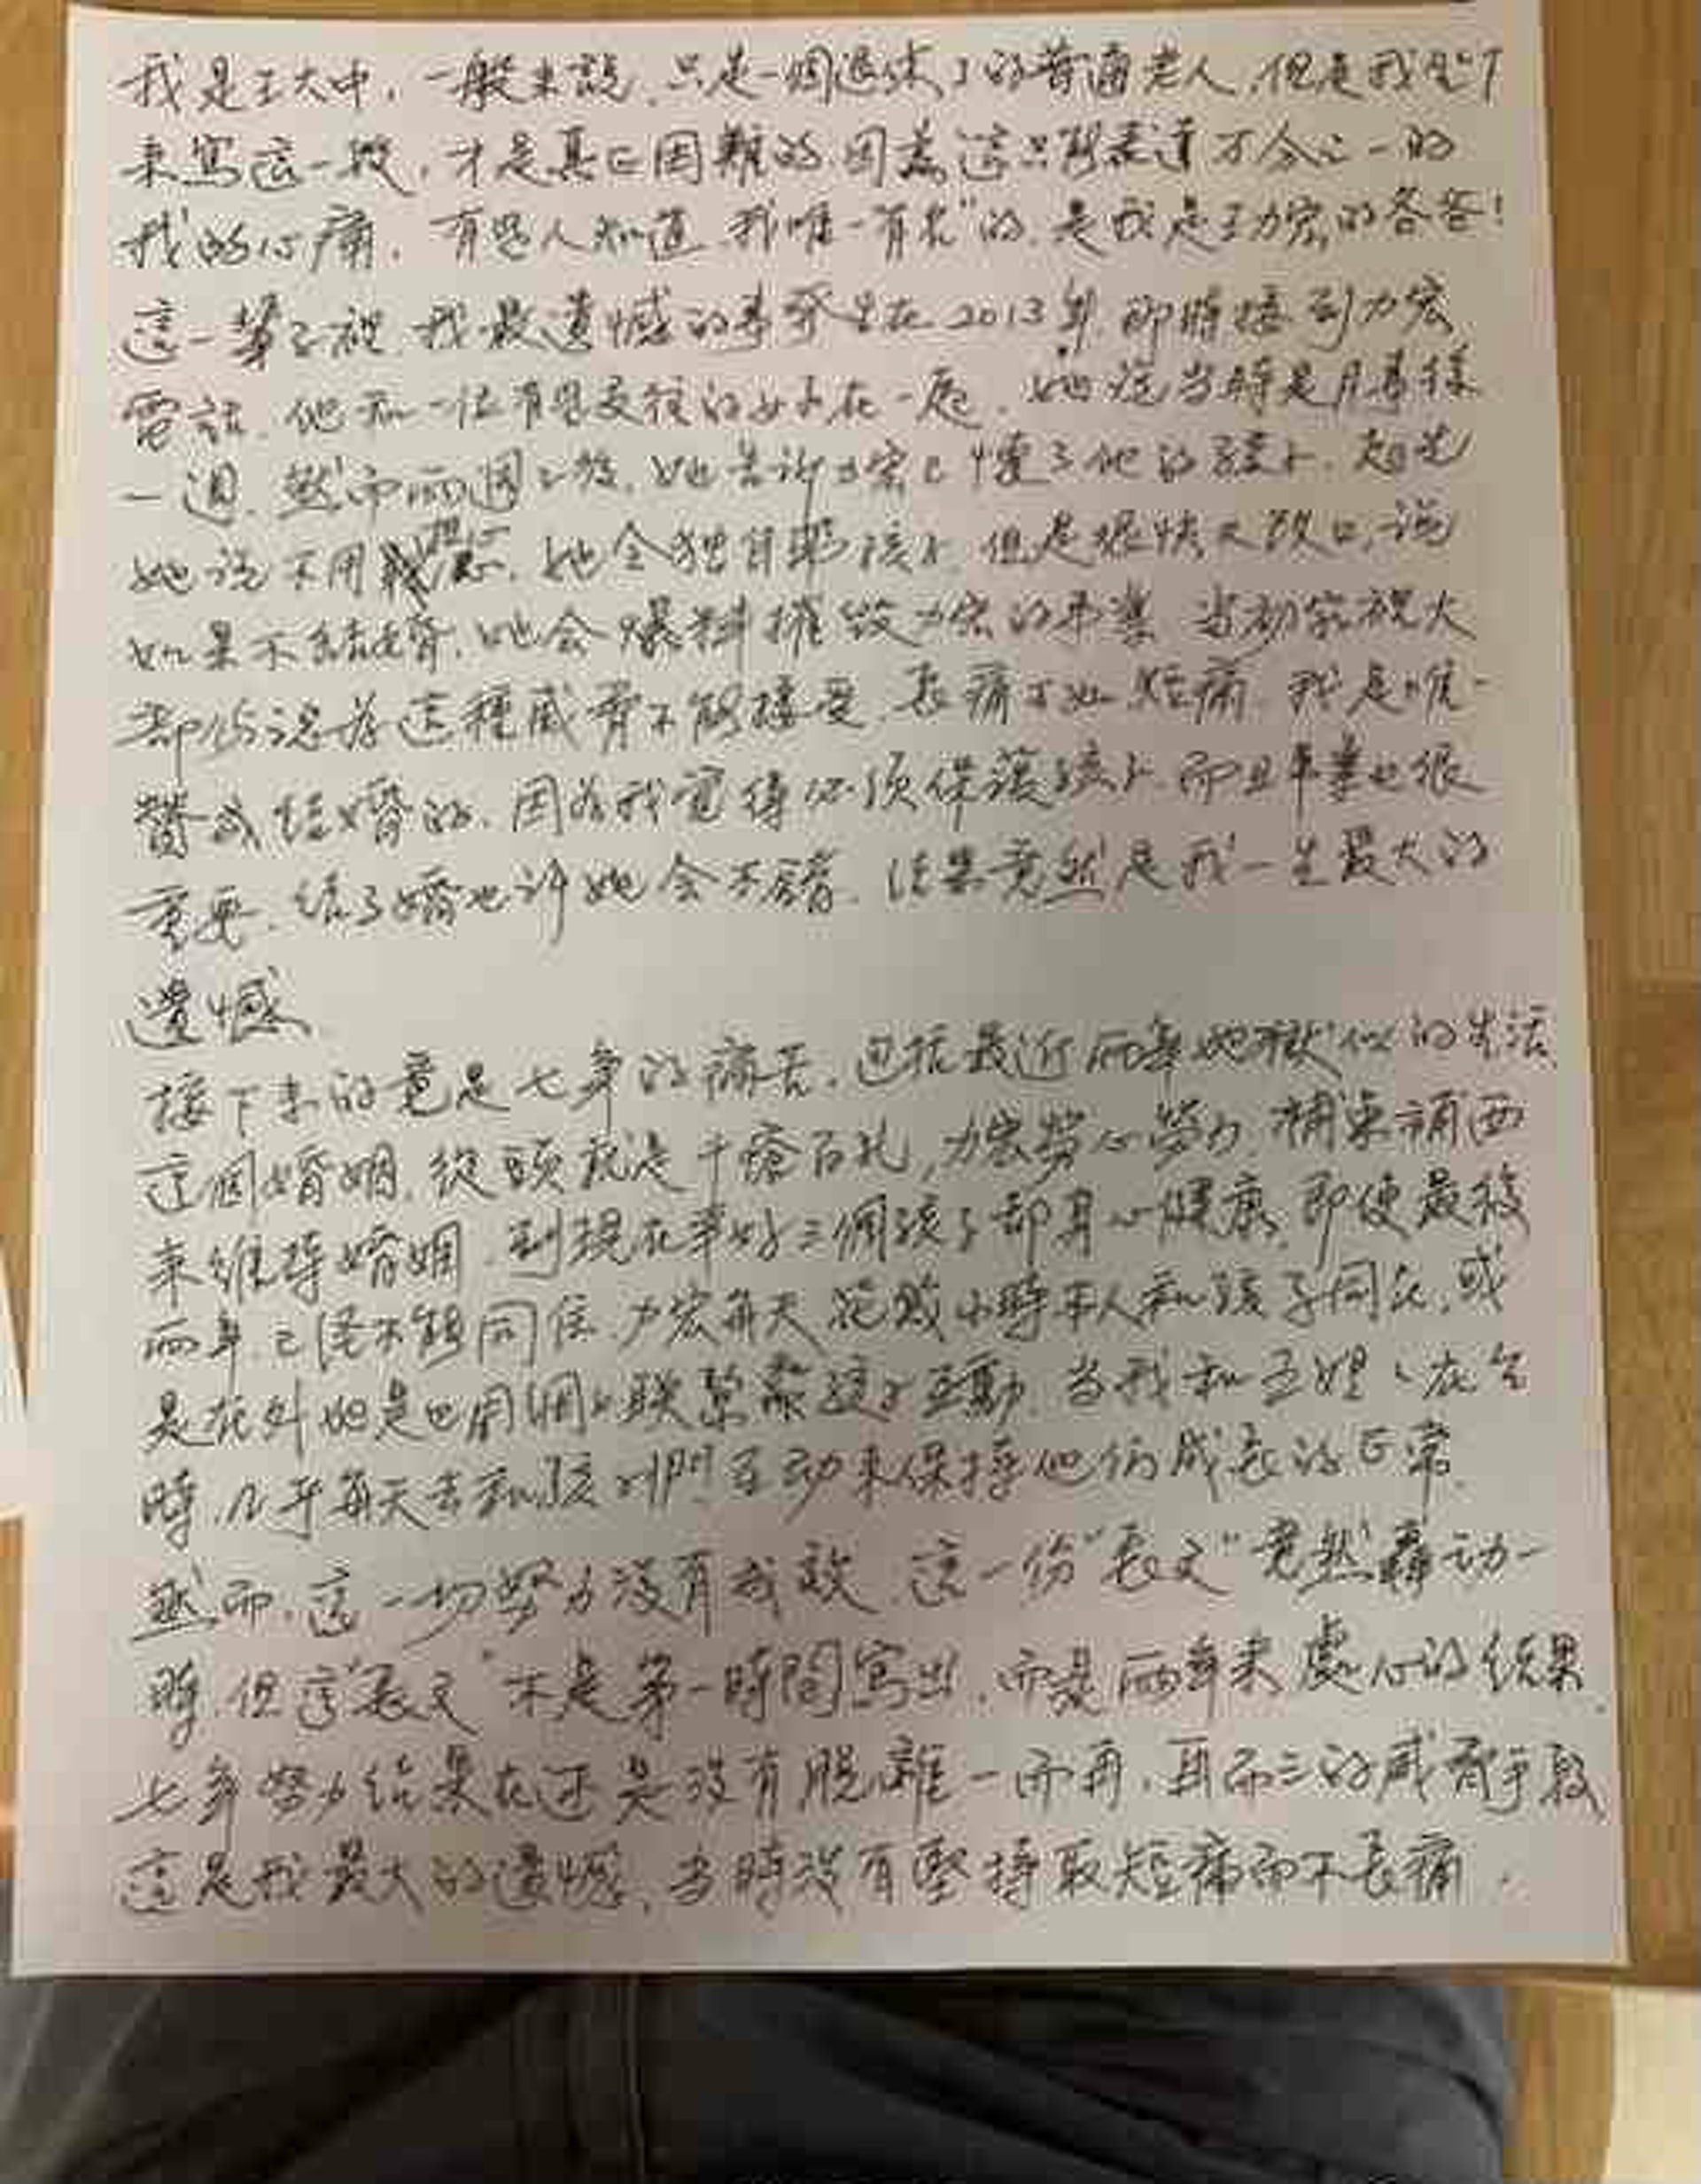 我是王大中，一般來說，只是一個退休了的普通老人，但是我坐下
來寫這一段，才是真正困難的，因為這只能表達万分之一的
我的心痛。有些人知道，我唯一"有名"的，是我是王力宏的爸爸！
這一輩子裡，我最遺憾的事發生在2013年，那時接到力宏
電話，他和一位有過交往的女子在一起，她说当時是月事後
一週，然而兩週之後，她告訴力宏已懷了他的孩子，起先
她说不用担心，她会独自帶孩子，但是很快又改口，说
如果不结婚，她会爆料摧毀力宏的事業，当初家裡大
部份認為這種威脅不能接受，長痛不如短痛，我是唯一
贊成结婚的，因為我覺得必須保護孩子，而且事業也很
重要，结了婚也许她会不錯，结果竟然是我一生最大的
遺憾。
接下来的竟是七年的痛苦，包括最近兩年地獄似的生活，
這個婚姻，從頭就是千瘡百孔，力宏勞心勞力，補東補西
來維持婚姻，到現在幸好三個孩子都身心健康，即使最後
兩年，已经不能同住，力宏每天花數小時本人和孩子同在，或
是在外地是也用網上联繫藂孩子互動，当我和王媽媽在台
時，几乎每天去和孩子們互动来保持他们成長的正常。
然而，這一切努力沒有成效，這一份"長文"竟然轟动一
時，但這"長文"不是第一時間寫出，而是兩年来處心的结果，
七年努力结果在还是沒有脱離一而再，再而三的威脅手段，
這是我最大的遺憾，当時沒有堅持取短痛而不長痛。